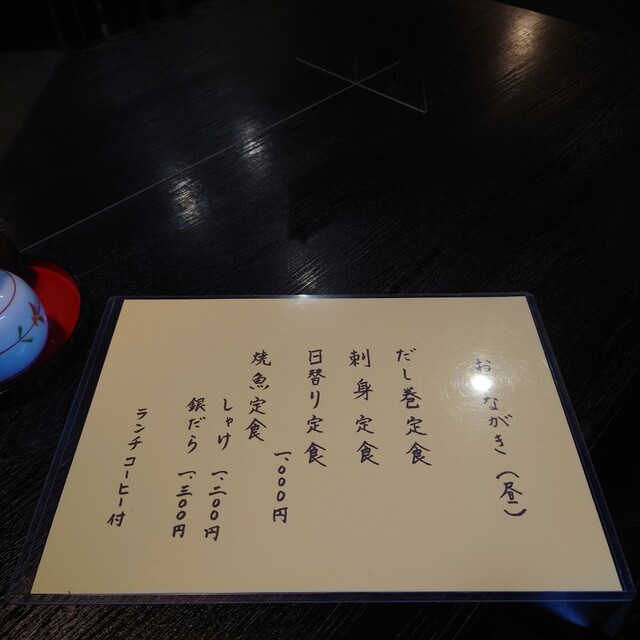 おしながき(昼)
だし巻定食
刺身定食
日替り定食
一、〇〇〇円
焼魚定食
しゃけ 一、二〇〇円
銀だら 一、三〇〇円
ランチコーヒー付